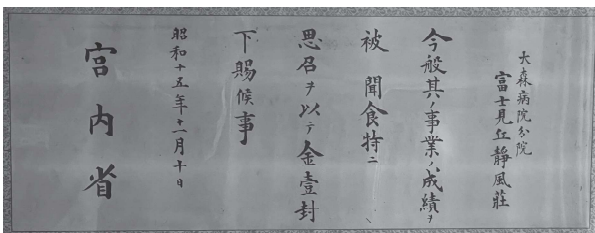 大森病院分院
富士見丘静風荘
今般其ノ事業ノ成績ヲ
被聞食特ニ
思召ヲ以テ金壹封
下賜候事
昭和十五年十一月十日
宮内省